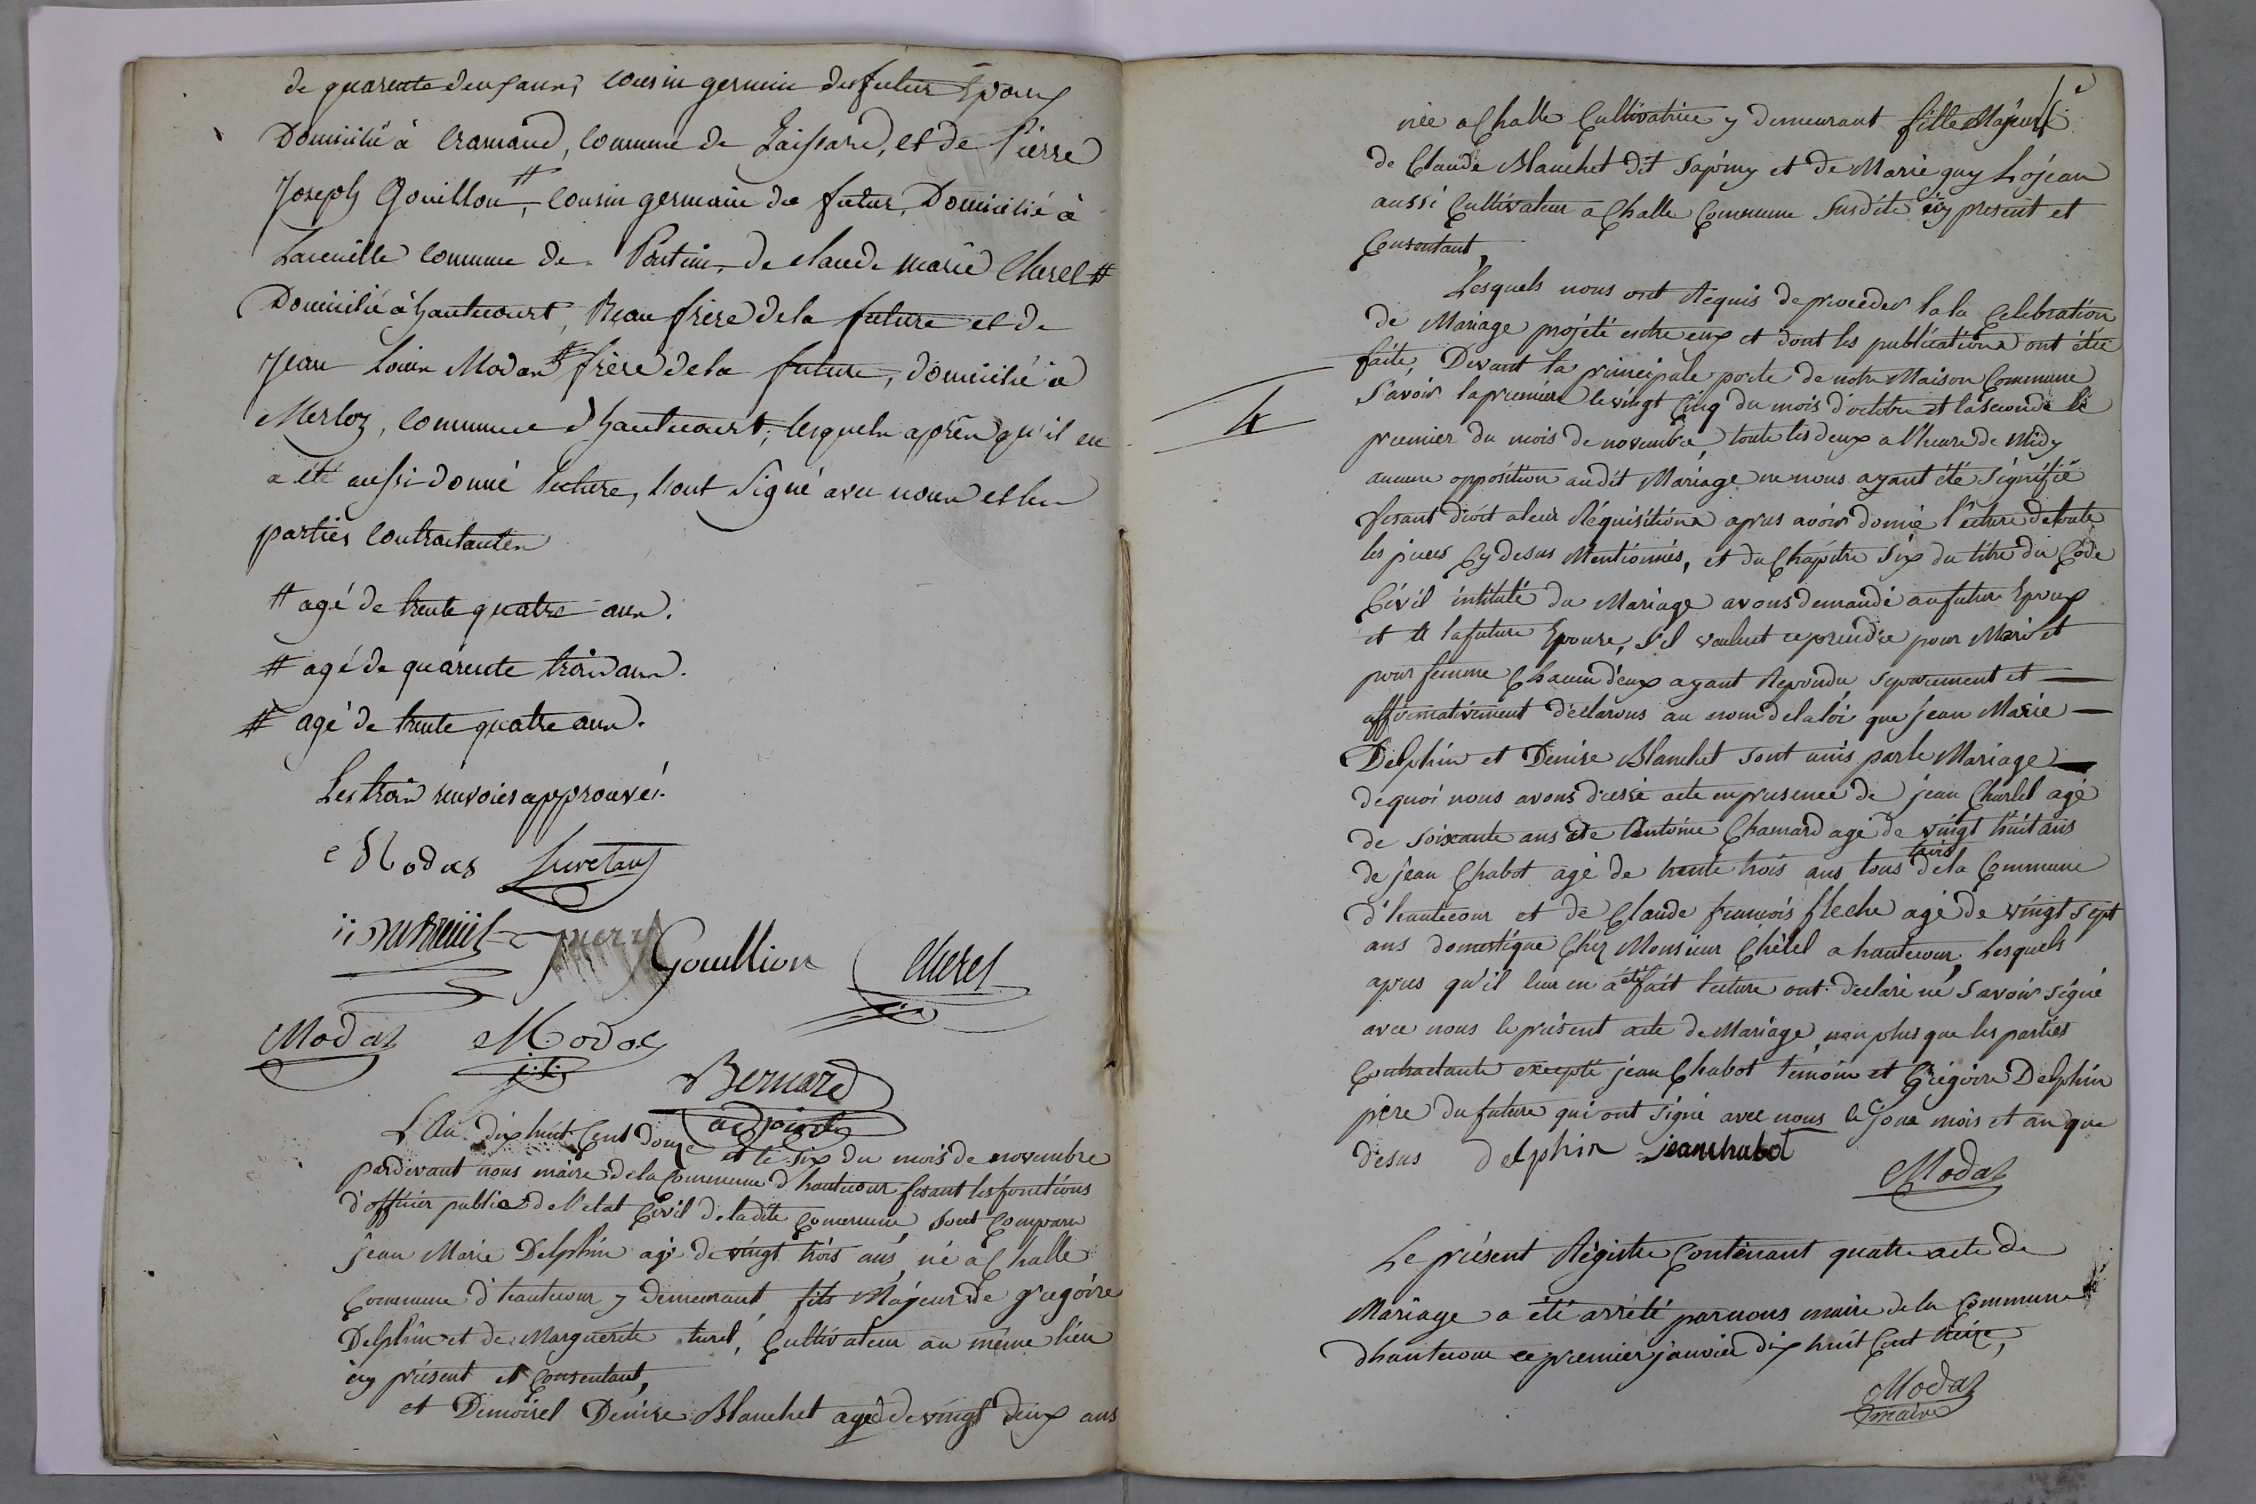 de quarente deux ans, cousin germain du futur Epoux
Domicilié à Cramand, commune de Laissard, et de Pierre
Joseph Gouillon #, cousin germain du futur, Domicilié à
commune de Poncin, de claude marie Cherel #
Domicilié à hautecourt, Beau frère de la future et de
Jean Louis Modas # frère de la future, domicilié à
Merloz, commune d'hautecourt, lesquels après qu'il en
a été aussi donné lecture, l'ont signé avec nous et les
parties contractantes
# agé de trente quatre ans.
# agé de quarente trois ans.
# agé de trente quatre ans.
Les trois renvoies approuvés.
Modas
pierre Gouillion Cherel
Modas Modas
Bernard
adjoint
L'An dix huit Cent douze et le six du mois de novembre
pardevant nous maire de la Commune d'hautecour fesant les fonctions
d'officier public de l'etat Civil de ladite Commune sont Comparu
jean Marie Delphin agé de vingt trois ans, né a Challe
Commune d'hautecour y demeurant, fils Majeur de gregoire
Delphin et de Marguerite turel, Cultivateur au même lieu
icy présent et Consentant,
et Demoisel Denise Blanchet agée de vingt deux ans
née a Challe Cultivatrice y demeurant fille Majeure
de Claude Blanchet dit Sapiny et de Marie guy Lojean
aussi Cultivateur a Challe Commune Susdite icy présent et
Consentant,
Lesquels nous ont Requis de proceder a la Celebration
de Mariage projété entre eux et dont les publications ont étée
faite, Devant la principale porte de notre Maison Commune
4
Savoir la premiere le vingt Cinq du mois d'octobre et la seconde le
premier du mois de novembre, toute les deux a l'heure de Midy
aucune opposition audit Mariage ne nous ayant été Signifié
fesant droit a leur Réquisitions apres avoir donné l'ecture de toute
les pieces Cy desus Mentionnés, et du Chapitre Six du titre du Code
Civil intitulé du Mariage avons demandé au futur Epoux
et a la future Epouse, s'il veulent ce prendre pour Mari et
pour femme Chacun d'eux ayant Repondu separement et
affirmativement déclarons au nom de la loi que jean Marie
Delphin et Denise Blanchet sont unis par le Mariage
de quoi nous avons dressé acte en presence de jean Charlel agé
de soixante ans de Antoine Chanard agé de vingt huit ans
de jean Chabot agé de trente trois ans tous trois de la Commune
d'hautecour et de Claude francois fleche agé de vingt sept
ans domestique Chez Monsieur Chérel a hautecour, Lesquels
apres qu'il leur en a été fait lecture ont declaré ne Savoir signé
avec nous le présent acte de Mariage, non plus que les parties
Contractante excepté jean Chabot témoin et Grégoire Delphin
père du future qui ont signé avec nous le jour mois et an que
desus delphin jean chabot
Modas
Le présent Régistre Contenant quatre acte de
Mariage a été arrêté par nous maire de la Commune
d'hautecour ce premier janvier dix huit Cent treize,
Modas
maire